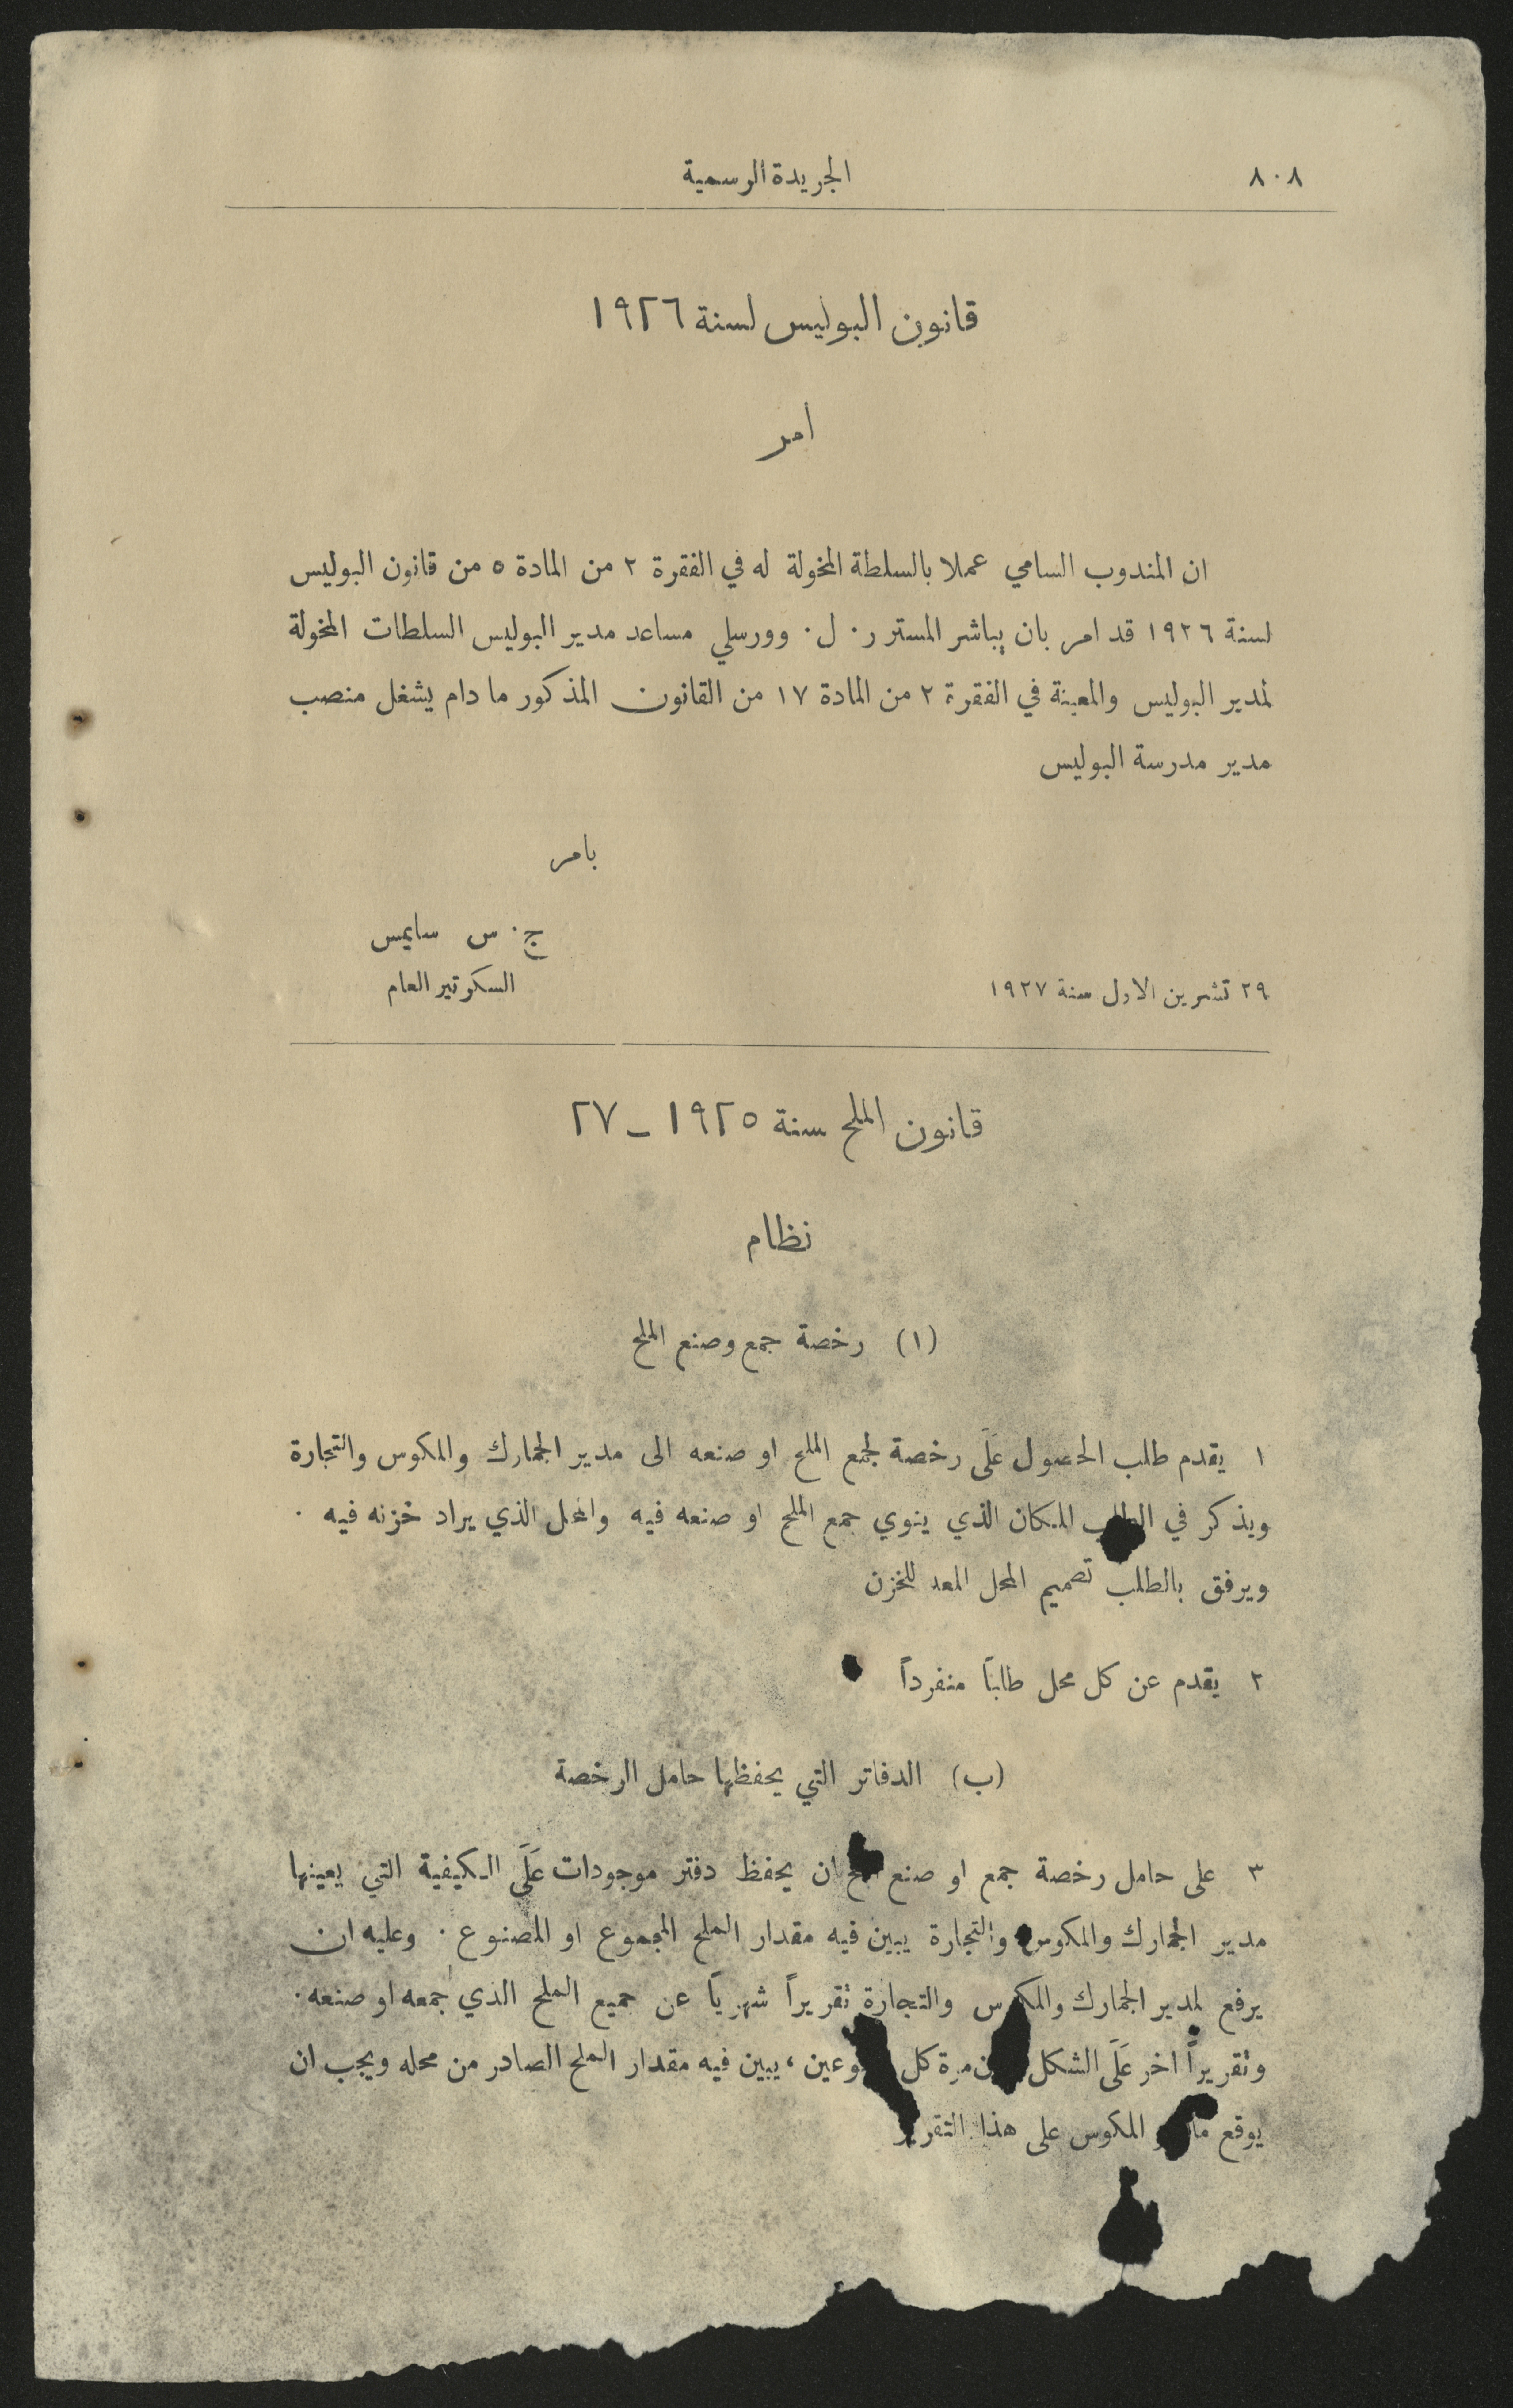 ٨٠٨
الجريدة الرسمية
قانون البوليس لسنة ١٩٢٦
أمر
ان المندوب السامي عملا بالسلطة المخولة له في الفقرة ٢ من المادة ٥ من قانون البوليس
لسنة ١٩٢٦ قد امر بان يباشر المستر ر. ل. وورسلي مساعد مدير البوليس السلطات المخولة
لمدير البوليس والمعينة في الفقرة ٢ من المادة ١٧ من القانون المذكور ما دام يشغل منصب
مدير مدرسة البوليس
بامر
ج. س سايمس
السكرتير العام
٢٩ تشرين الاول سنة ١٩٢٧
قانون الملح سنة ١٩٢٥ - ٢٧
نظام
(١) رخصة جمع وصنع الملح
١ يقدم طلب الحصول عَلَى رخصة لجمع الملح او صنعه الى مدير الجمارك والمكوس والتجارة
ويذكر في الطلب المكان الذي ينوي جمع الملح او صنعه فيه والمحل الذي يراد خزنه فيه .
ويرفق بالطلب تصميم المحل المعد للخزن
٢ يقدم عن كل محل طلباً منفرداً
(ب) الدفاتر التي يحفظها حامل الرخصة
٣ على حامل رخصة جمع او صنع ان يحفظ دفتر موجودات عَلَى الكيفية التي يعينها
مدير الجمارك والمكوس والتجارة يبين فيه مقدار الملح المجموع او المصنوع . وعليه ان
يرفع لمدير الجمارك والمكوس والتجارة تقريراً شهرياً عن جميع الملح الذي جمعه او صنعه .
وتقريراً اخر عَلَى الشكل مرة كل ، يبين فيه مقدار الملح الصادر من محله ويجب ان
يوقع المكوس على هذا التقرير